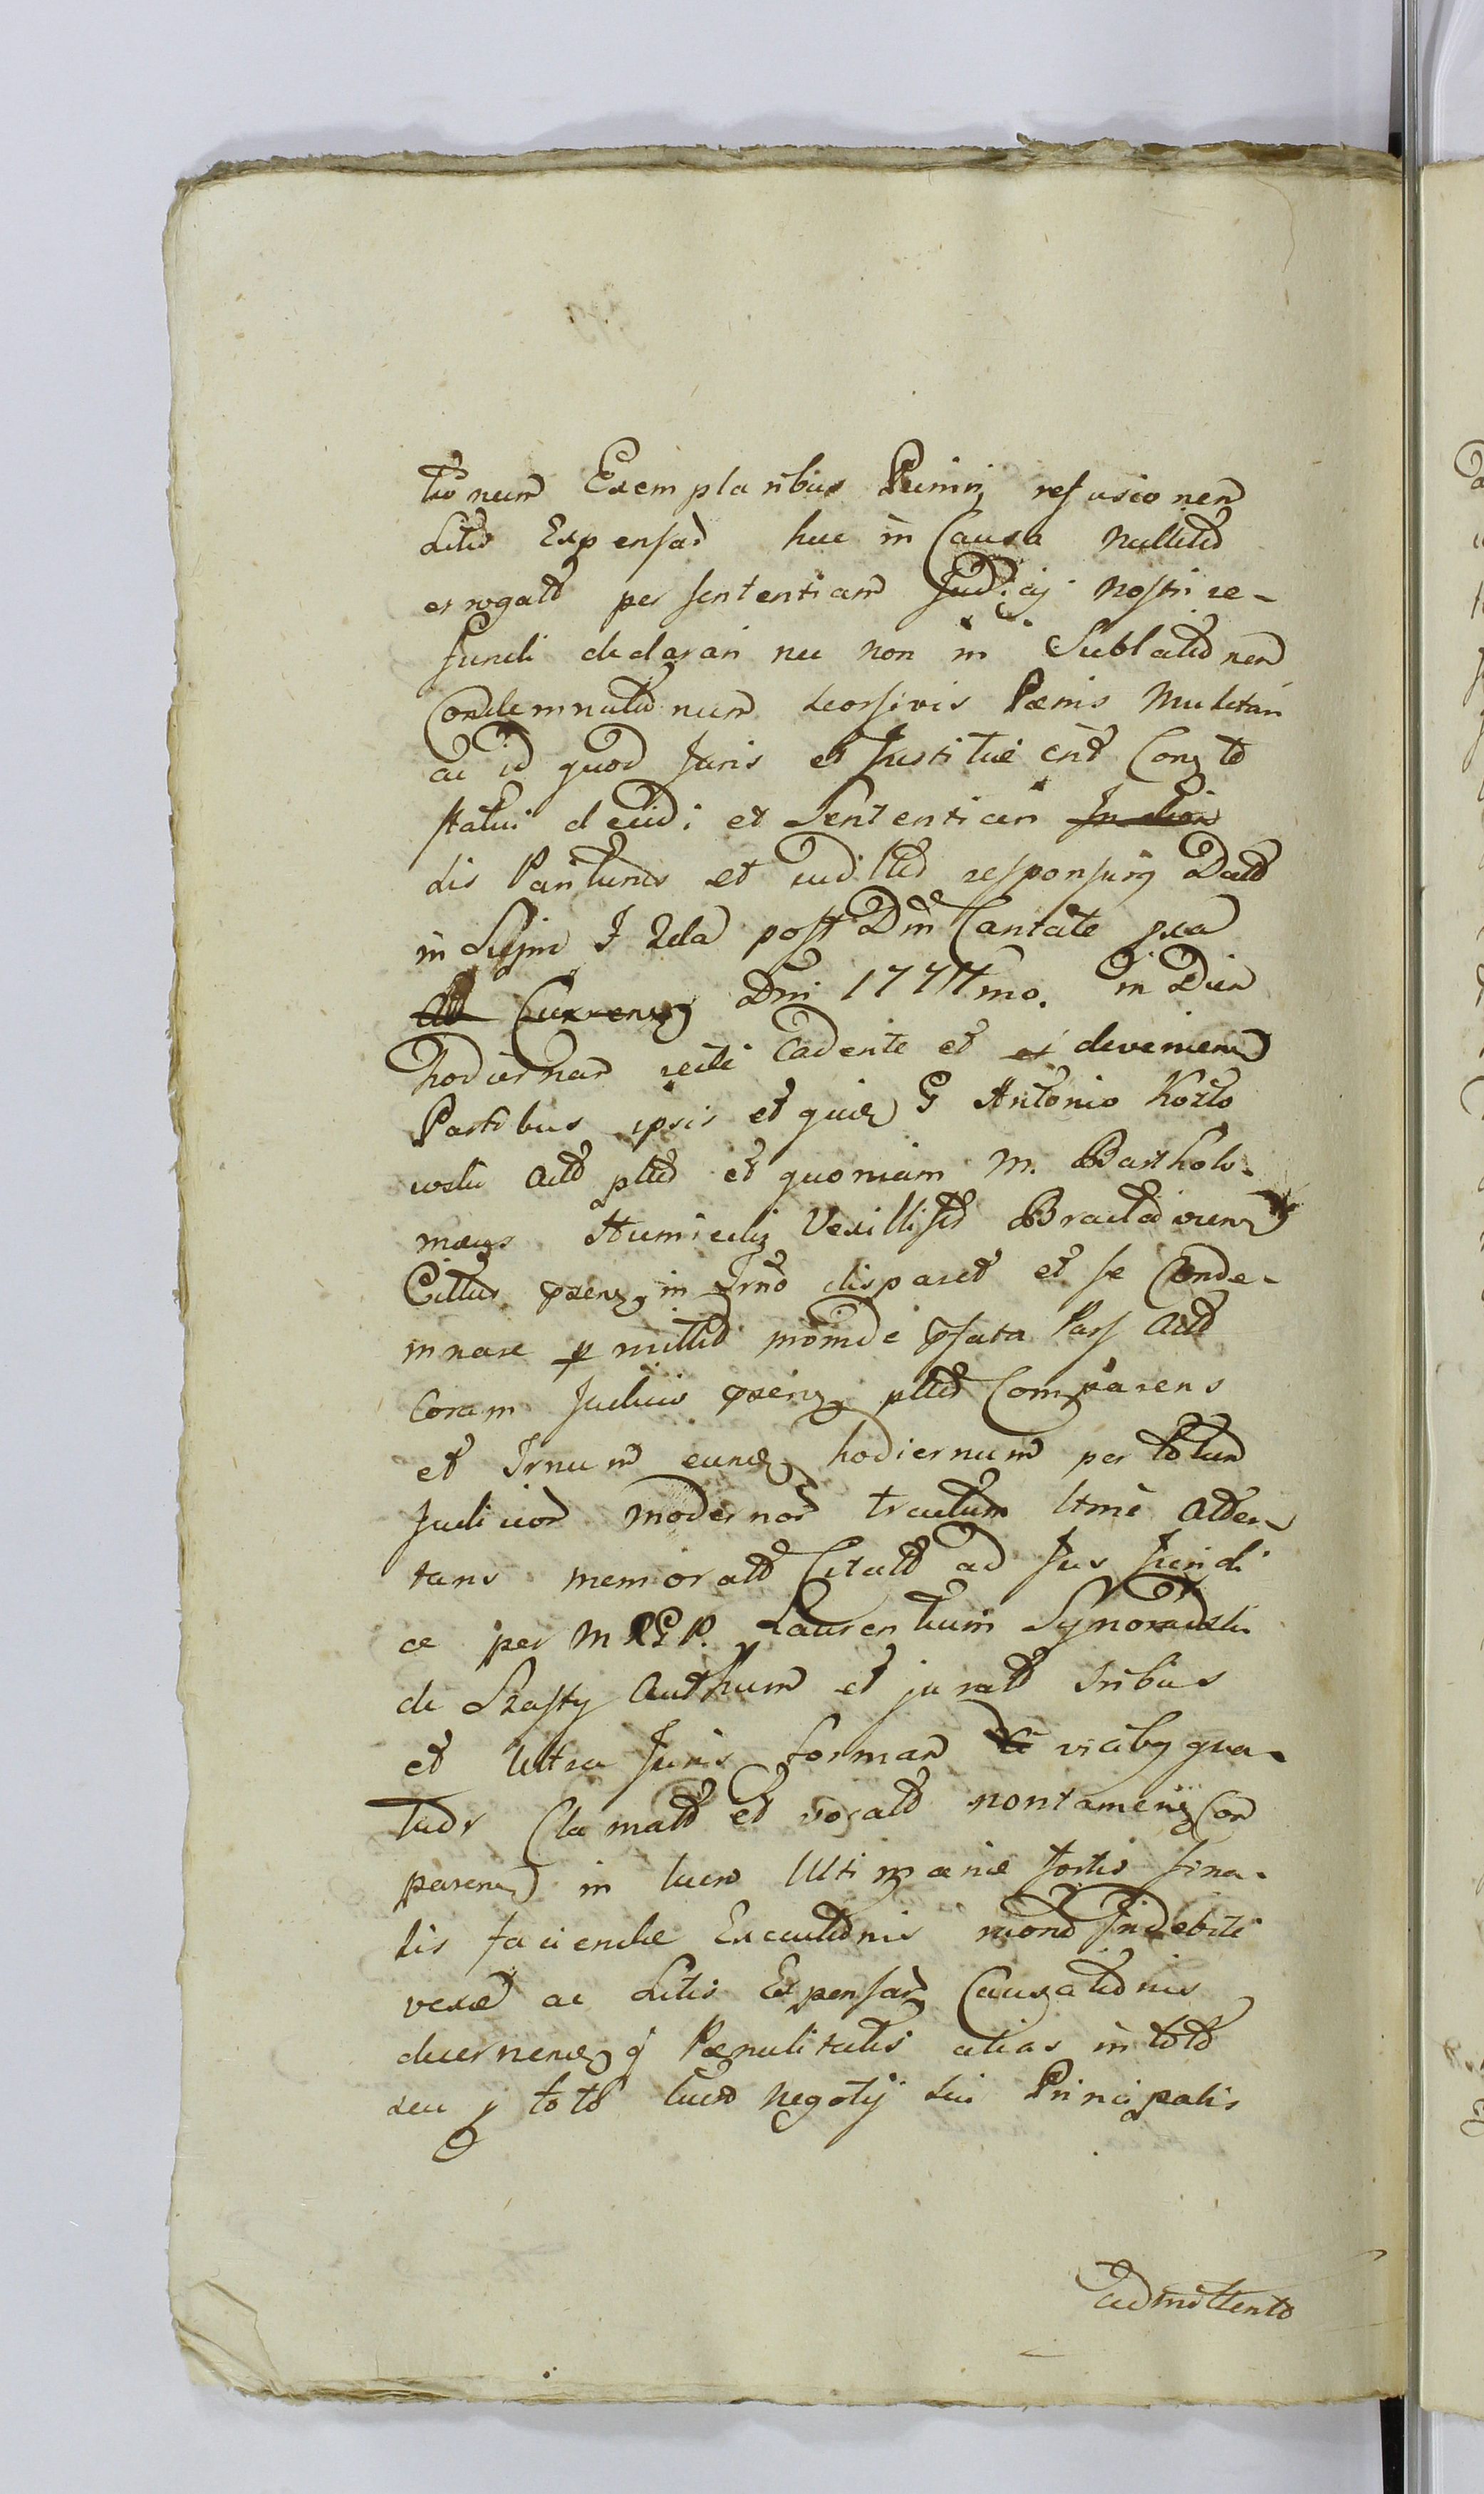 tionem Exemplaribus Pœnis refusionem
Litis Expensar huc in Causa Nullitd
erogatd per sententiam Judicij nostri re-
fundi declarari nec non in Sublatidnem
Condemnatidnum Leorsivis Pœnis Mulctari
ac id quod Juris et Justitiæ
statui decidi et Sententiari
Lis Pariturus et ad Ltd responsurus Datd
in post Dm Cantate
Currens Dni 1777mo. in Diem
hodiernam recte Cadente et devenien
Partibus ipsis et quidem G Antonio Kozło
wski Actd pltd et quoniam M. Bartholo-
mæus Humiecki Vexillifd Bractaviens
Citatus præns in Trno disparet et se Conde-
mnare p mittid proinde præfata Pars Actd
Coram Judicio præns pltd Comparens
et Trnum eund hodiernum per totum
Judicior modernor tractum Ltme Atten-
tans memoratd Citatd ad Jus Juridi
ce per M R G P. Laurentium
de authum et juratd tribus
et Ultra Juris formam vicibus qua-
tuor Clamatd et vocatd non tamen Com
parend in lucro Ultimariæ sortis fina-
lis faciendæ Executidnis Indebite
vexæ ac Litis Expensar Causatidnis
decernend q Pœnalitatis alias in totd
seu p totd lucro negotij sui Principalis
admittentd